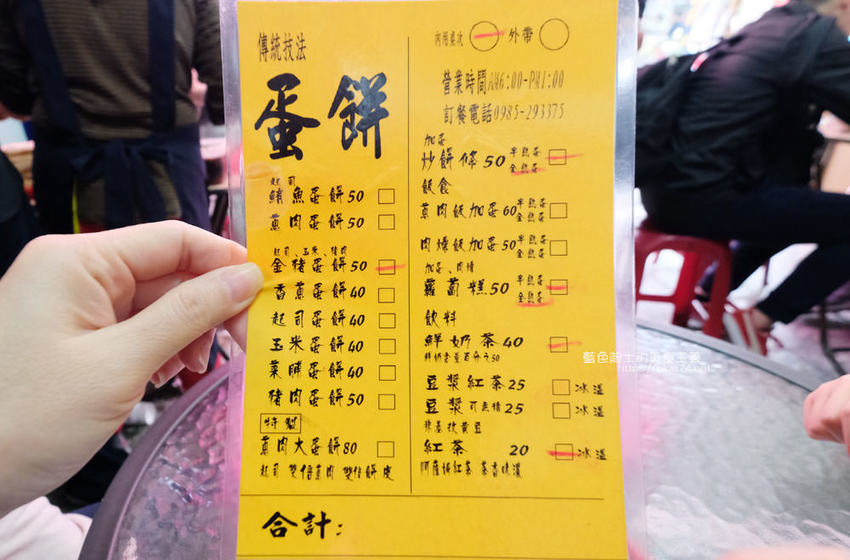 傳統技法
蛋餅
起司
鮪魚蛋餅50
燻肉蛋餅50
起司、玉米、豬肉
金豬蛋餅50
香蔥蛋餅40
起司蛋餅40
玉米蛋餅40
菜脯蛋餅40
豬肉蛋餅50
特製
燻肉大蛋餅80
起司 雙倍燻肉 雙倍餅皮
合計:
內用桌次 外帶
營業時間AM6:00-PM1:00
訂餐電話0985-293375
加蛋
炒餅條50 半熟蛋 全熟蛋
飯食
燻肉飯加蛋60 半熟蛋 全熟蛋
肉燥飯加蛋50 半熟蛋 全熟蛋
加蛋、肉燥
蘿蔔糕50 半熟蛋 全熟蛋
飲料
鮮奶茶40
鮮奶含量百分之50
豆漿紅茶25 冰溫
豆漿可無糖25 冰溫
非基改黃豆
紅茶 20 冰溫
阿薩姆紅茶 茶香燒濃
藍色起士的美食主義